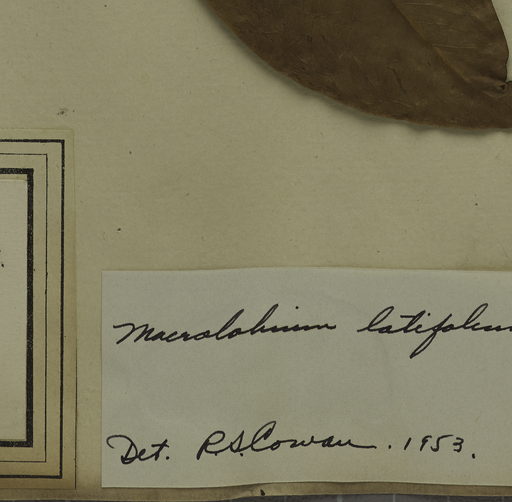 Macrolobium latifolium
Det. R.S. Cowan. 1953.